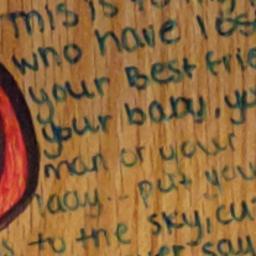 This is to my
who have los
your Best frie
your baby, yo
your man or your
lady.. put you
to the sky, cu
ver say